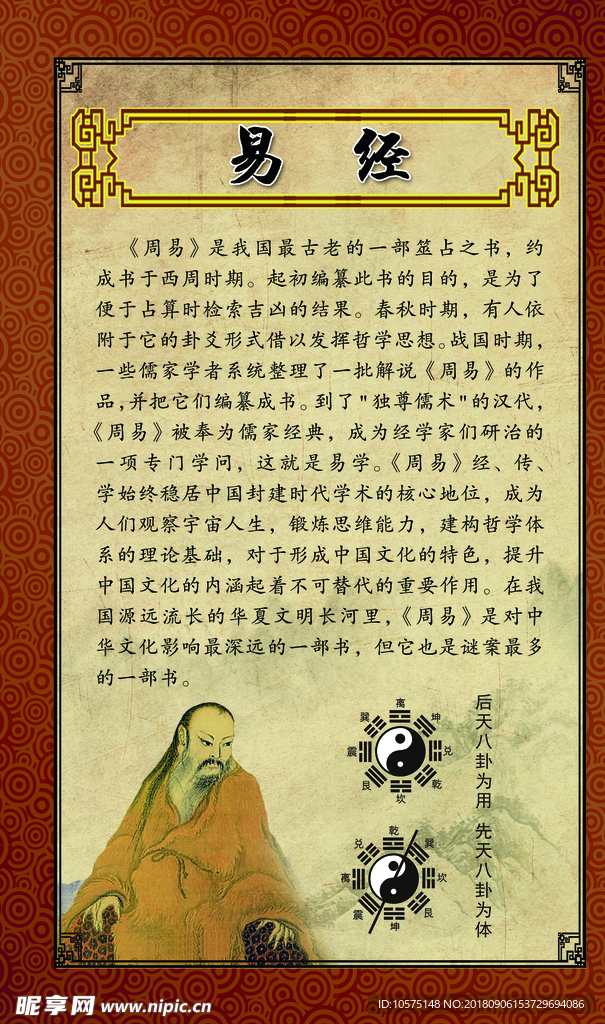 易 经
《周易》是我国最古老的一部筮占之书，约
成书于西周时期。起初编纂此书的目的，是为了
便于占算时检索吉凶的结果。春秋时期，有人依
附于它的卦爻形式借以发挥哲学思想。战国时期，
一些儒家学者系统整理了一批解说《周易》的作
品，并把它们编纂成书。到了"独尊儒术"的汉代，
《周易》被奉为儒家经典，成为经学家们研治的
一项专门学问，这就是易学。《周易》经、传、
学始终稳居中国封建时代学术的核心地位，成为
人们观察宇宙人生，锻炼思维能力，建构哲学体
系的理论基础，对于形成中国文化的特色，提升
中国文化的内涵起着不可替代的重要作用。在我
国源远流长的华夏文明长河里，《周易》是对中
华文化影响最深远的一部书，但它也是谜案最多
的一部书。
后天八卦为用 先天八卦为体
离
巽 坤
震 兑
艮 乾
坎
乾
兑 巽
离 坎
震 艮
坤
昵享网 www.nipic.cn
ID:10575148 NO:20180906153729694086